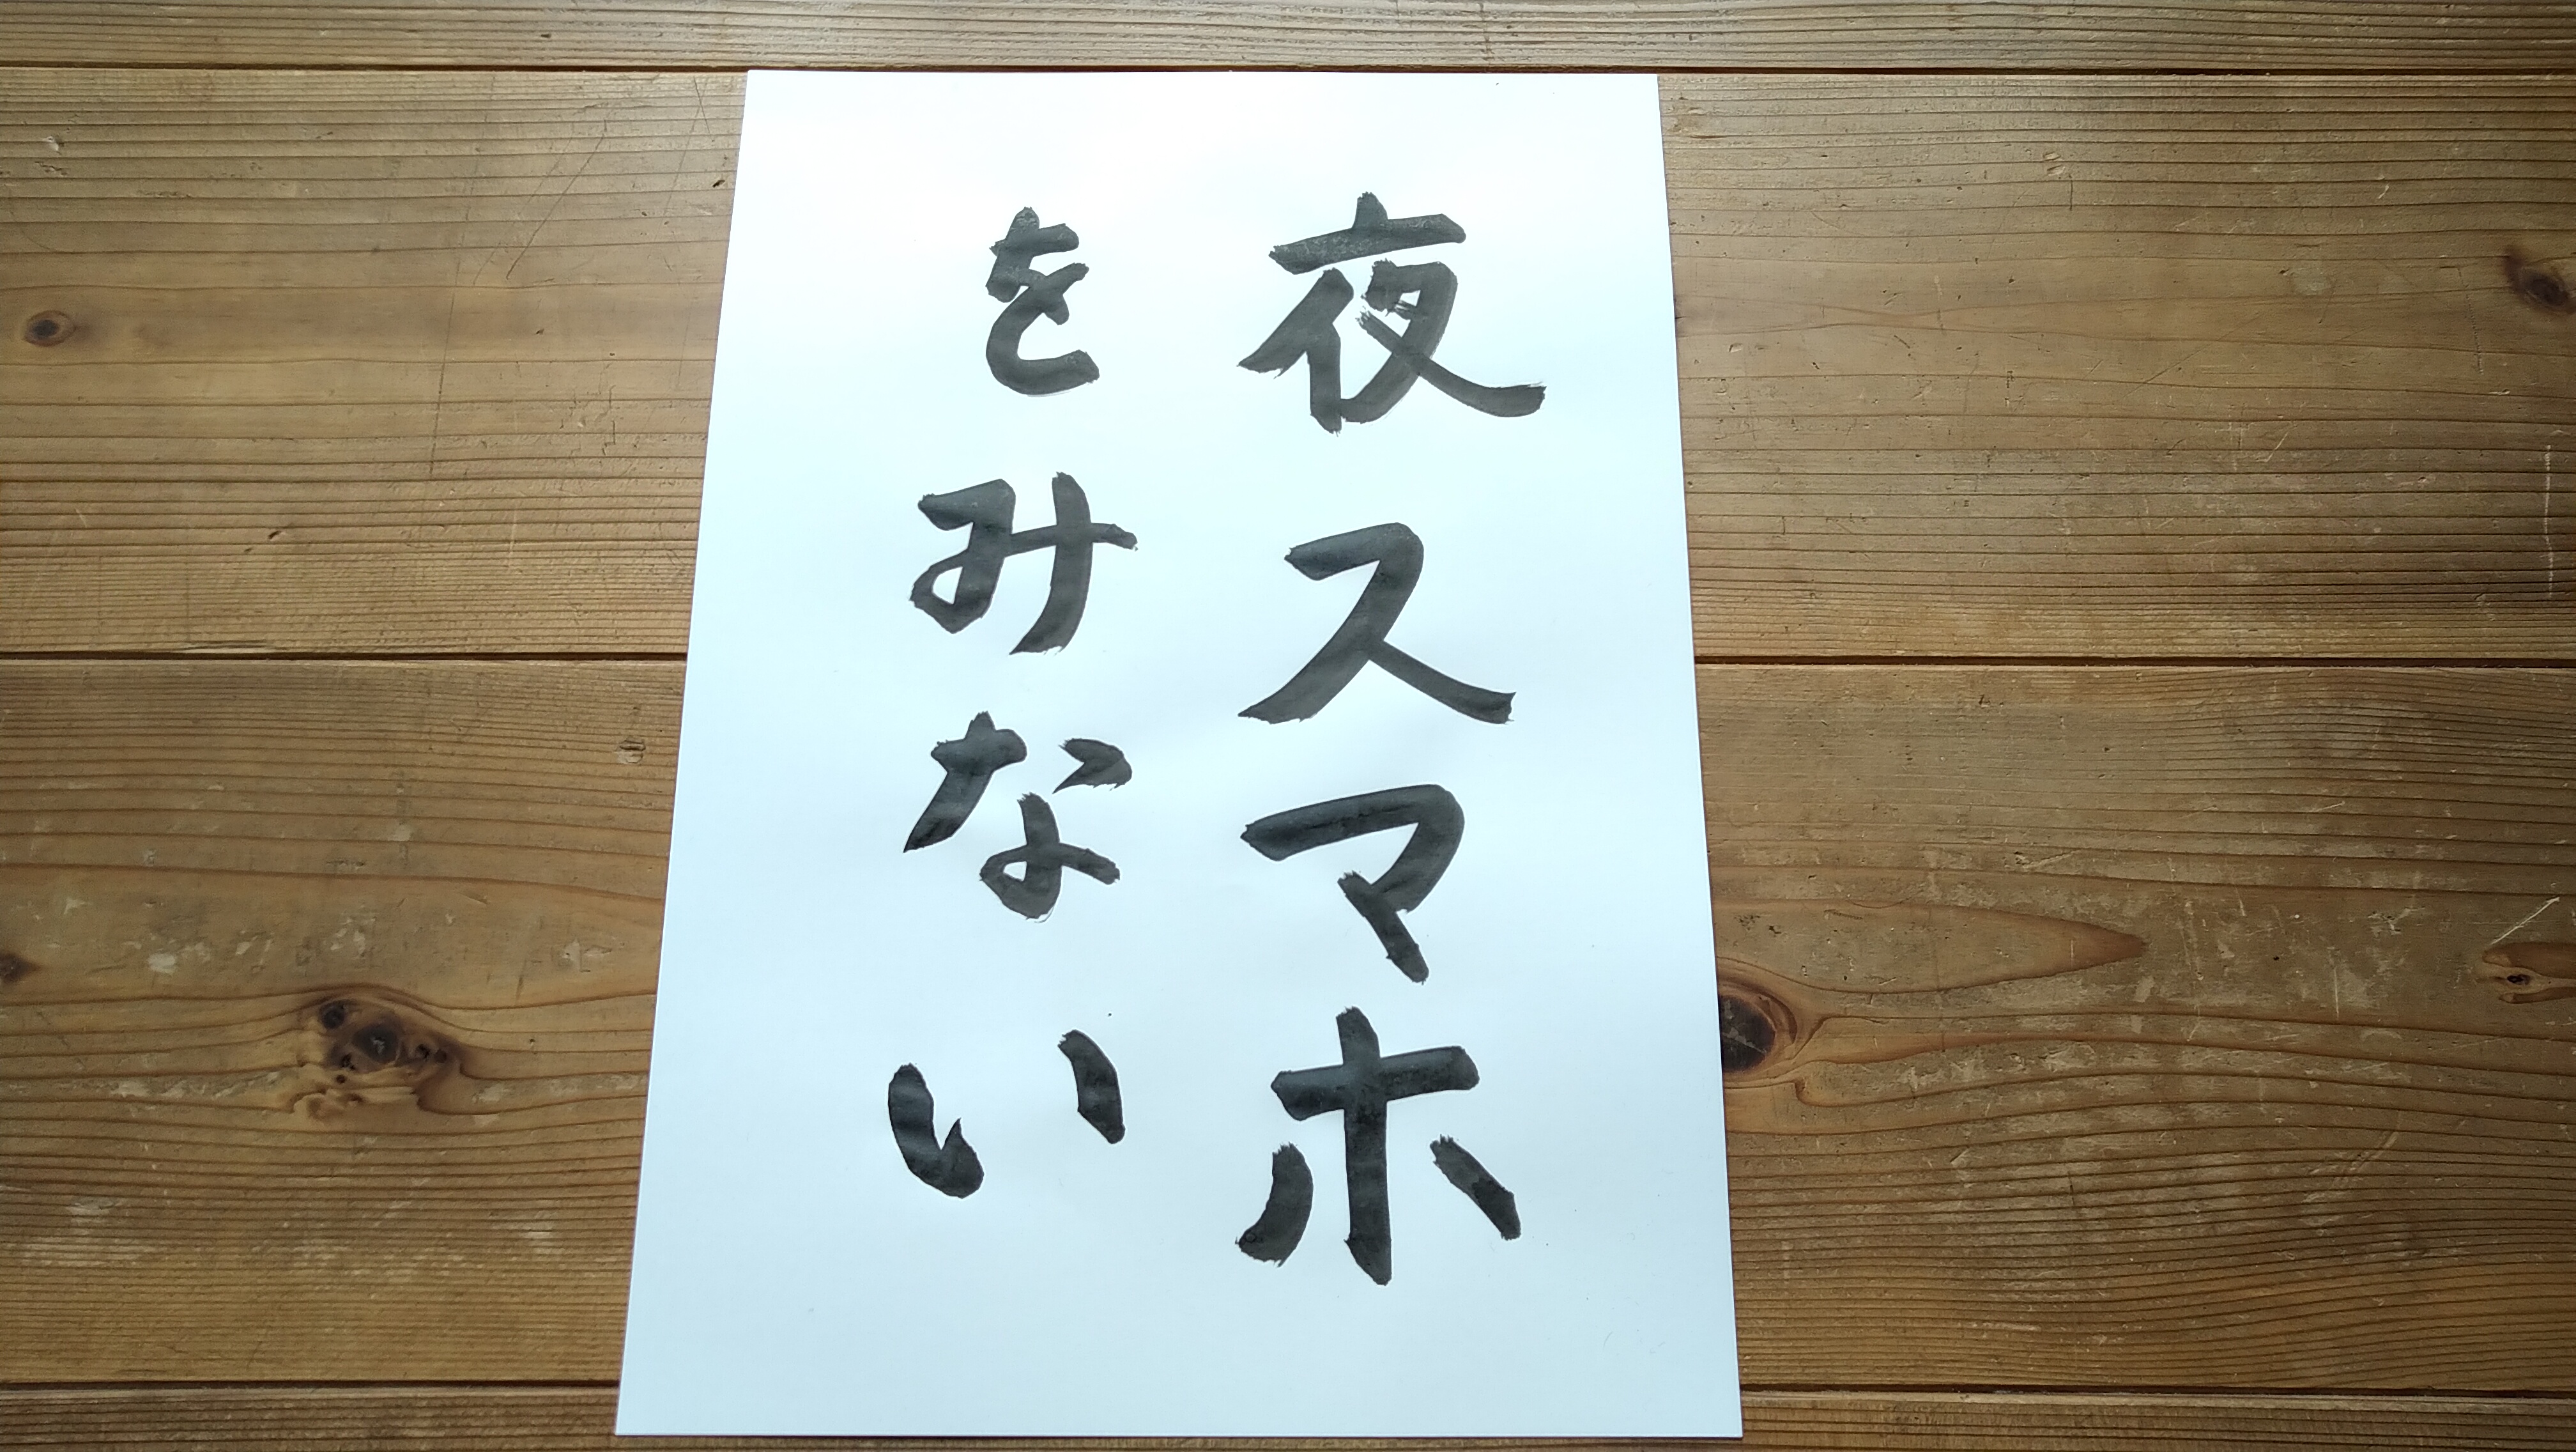 夜スマホ
をみない